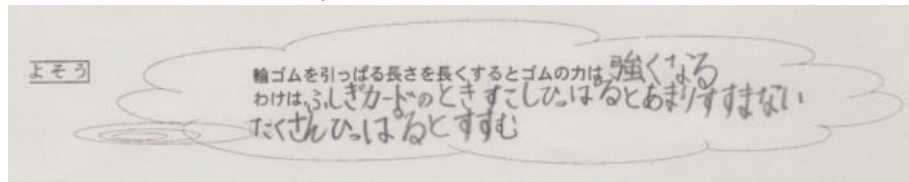 よそう
輪ゴムを引っぱる長さを長くするとゴムの力は、強くなる
わけは、ふしぎカードのときすこしひっぱるとあまりすすまない
たくさんひっぱるとすすむ